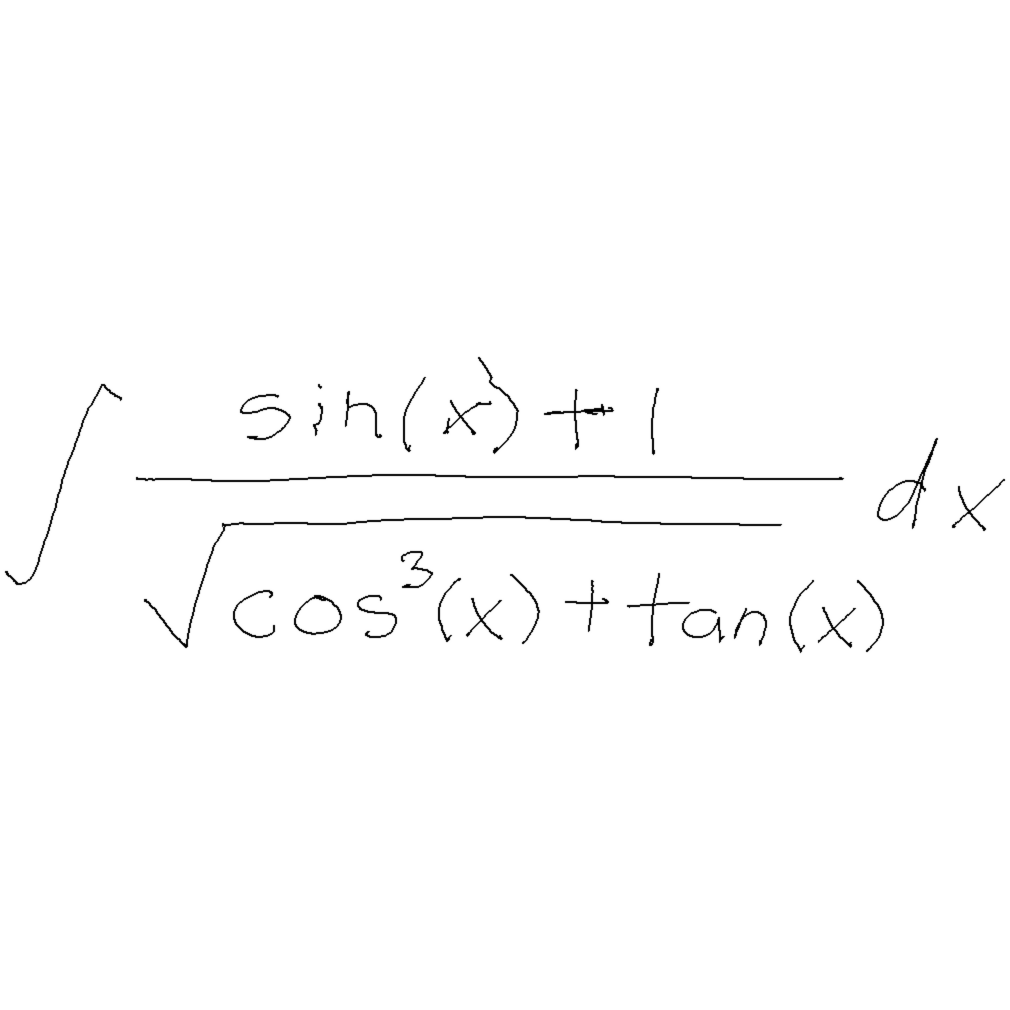 ∫ (sin(x) + 1) / √(cos³(x) + tan(x)) dx